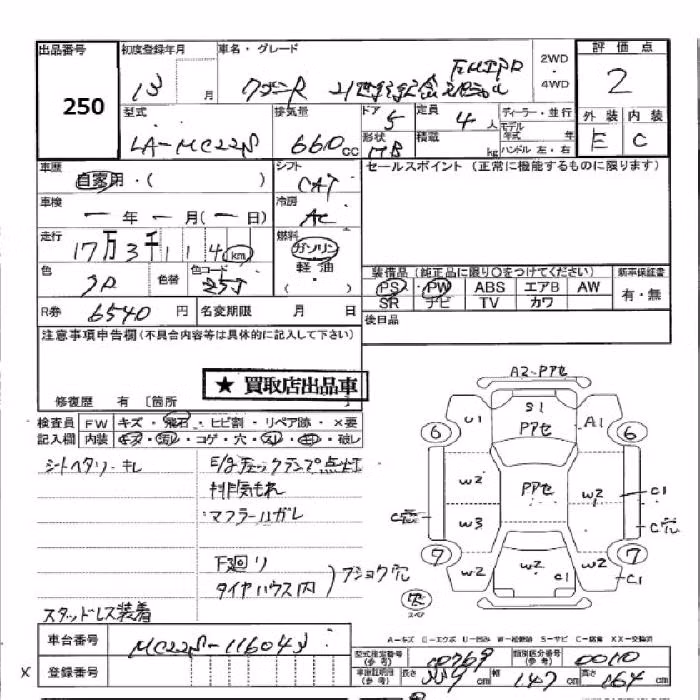 出品番号 初度登録年月 車名・グレード 2WD・4WD 評価点
250 13 月 ワゴンR 21世紀記念 2
型式 排気量 ドア 定員 ディーラー・並行 外装 内装
LA-MC22S 660cc 5 4人 モデル年式 年 E C
形状 積載 kg ハンドル 左・右
車歴 シフト セールスポイント (正常に機能するものに限ります)
自家用・( ) CAT
車検 冷房
ー年ー月(ー日) AC
走行 燃料
17万3千114km ガソリン
軽油
( )
色 色替 色コード 装備品(純正品に限り〇をつけてください) 新車保証書
25J PS PW ABS エアB AW 有・無
SR ナビ TV カワ
R券 6540円 名変期限 月 日 後日品
注意事項申告欄(不具合内容等は具体的に記入して下さい)
修復歴 有 〔箇所
★ 買取店出品車
検査員記入欄 FW キズ・飛石・ヒビ割・リペア跡・×要
内装 キズ・汚レ・コゲ・穴・スレ・キレ・破レ
シートヘタリ・キレ
E/gチェックランプ点灯
排気もれ
マフラーハガレ
下廻り
タイヤハウス内 フショク穴
スタッドレス装着
A2・Pアセ
U1 S1 A1
Pアセ
6 6
Pアセ
W2 W2 C1
W3 C穴 C穴
7 7
W2 W2 C1 W2 C1
A-キズ U-凹み W-補修跡 S-サビ C-腐食 XX-交換済
車台番号 MC22S-116043
型式指定番号(参考) 10769 類別区分番号(参考) 0010
登録番号
車検証明用(参考) 長さ 339cm 幅 147cm 高さ 164cm
X